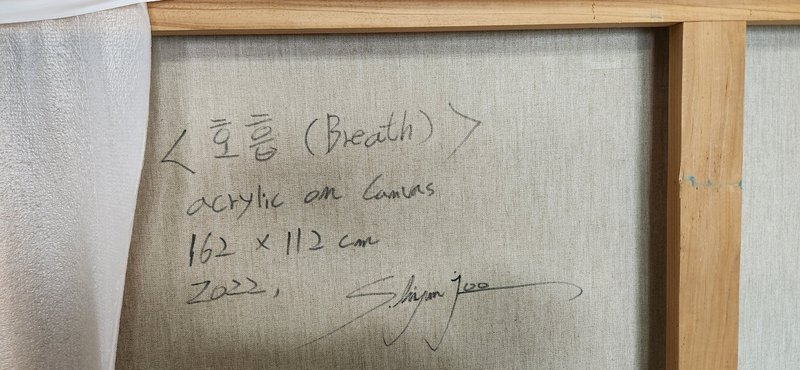 <호흡 (Breath)>
acrylic on Canvas
162 x 112 cm
2022,
Joo